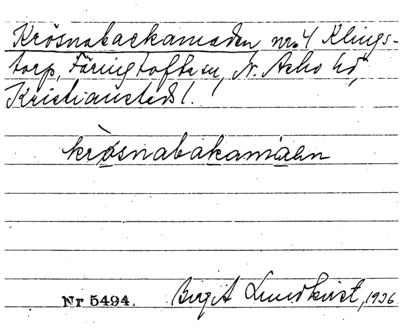 Krösnabackamaden, nr 4 Klings-
torp, Färingtofta sn, N. Åsbo hd,
Kristianstads l.
krösnabakamaen
Nr 5494. Birgit Lundkvist, 1936